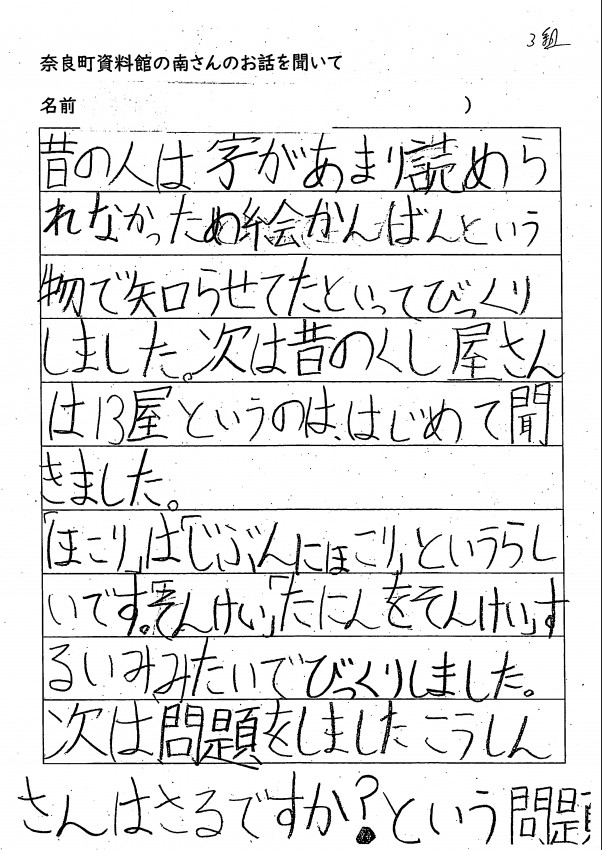 3組
奈良町資料館の南さんのお話を聞いて
名前 )
昔の人は字があまり読めら
れなかっため絵かんばんという
物で知らせてたといってびっくり
しました。次は昔のくし屋さん
は13屋というのは、はじめて聞
きました。
「ほこり」は「じぶんにほこり」というらし
いです。「そんけい」「たにんをそんけい」す
るいみみたいでびっくりしました。
次は問題をしましたこうしん
さんはさるですか?という問題